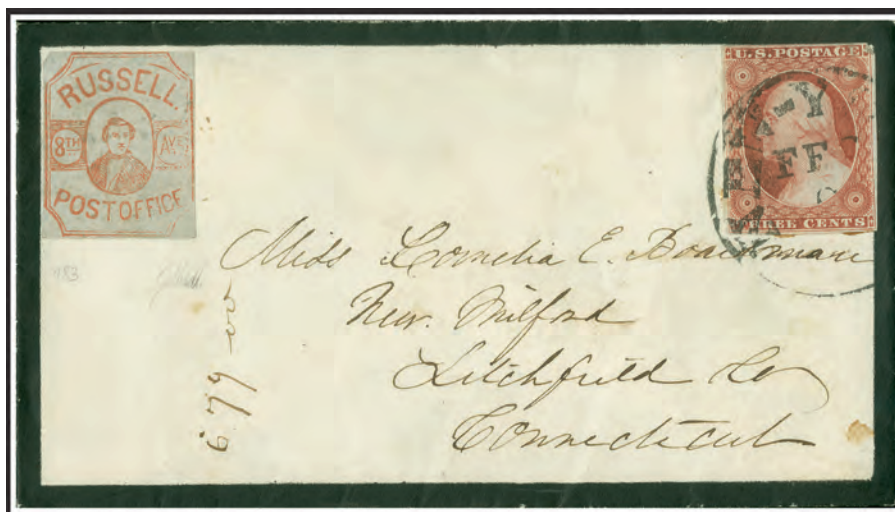 RUSSELL.
8TH AVE.
POST OFFICE
U.S. POSTAGE
THREE CENTS
FF
Miss Cornelia E. Boardman
New. Milford
Litchfield Co
Connecticut
677 00